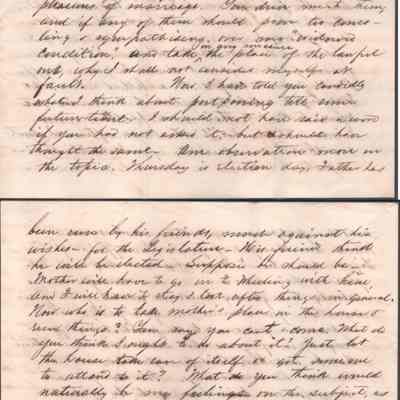 pleasures of marriage. You dear
and if any of them should prove too conso-
ling & sympathising, over my "widowed
condition" and take, in any measure the place of the lawful
one, why I shall not consider myself at
fault. Now I have told you candidly
what I think about postponing till some
future time. I should not have said a word
if you had not asked it, but should have
thought the same. One observation more on
the topic. Thursday is election day, Father has
been run by his friends, most against his
wishes for the Legislature. His friends think
he will be elected. Suppose he should be.
Mother will have to go to Wheeling with him,
and I will have to stay & look after things in general.
Now who is to take mother's place in the house &
things? You say you can't come. What do
you think I ought to do about it? Just let
the house take care of itself or get someone
to attend to it? What do you think would
naturally be my feelings on the subject, as